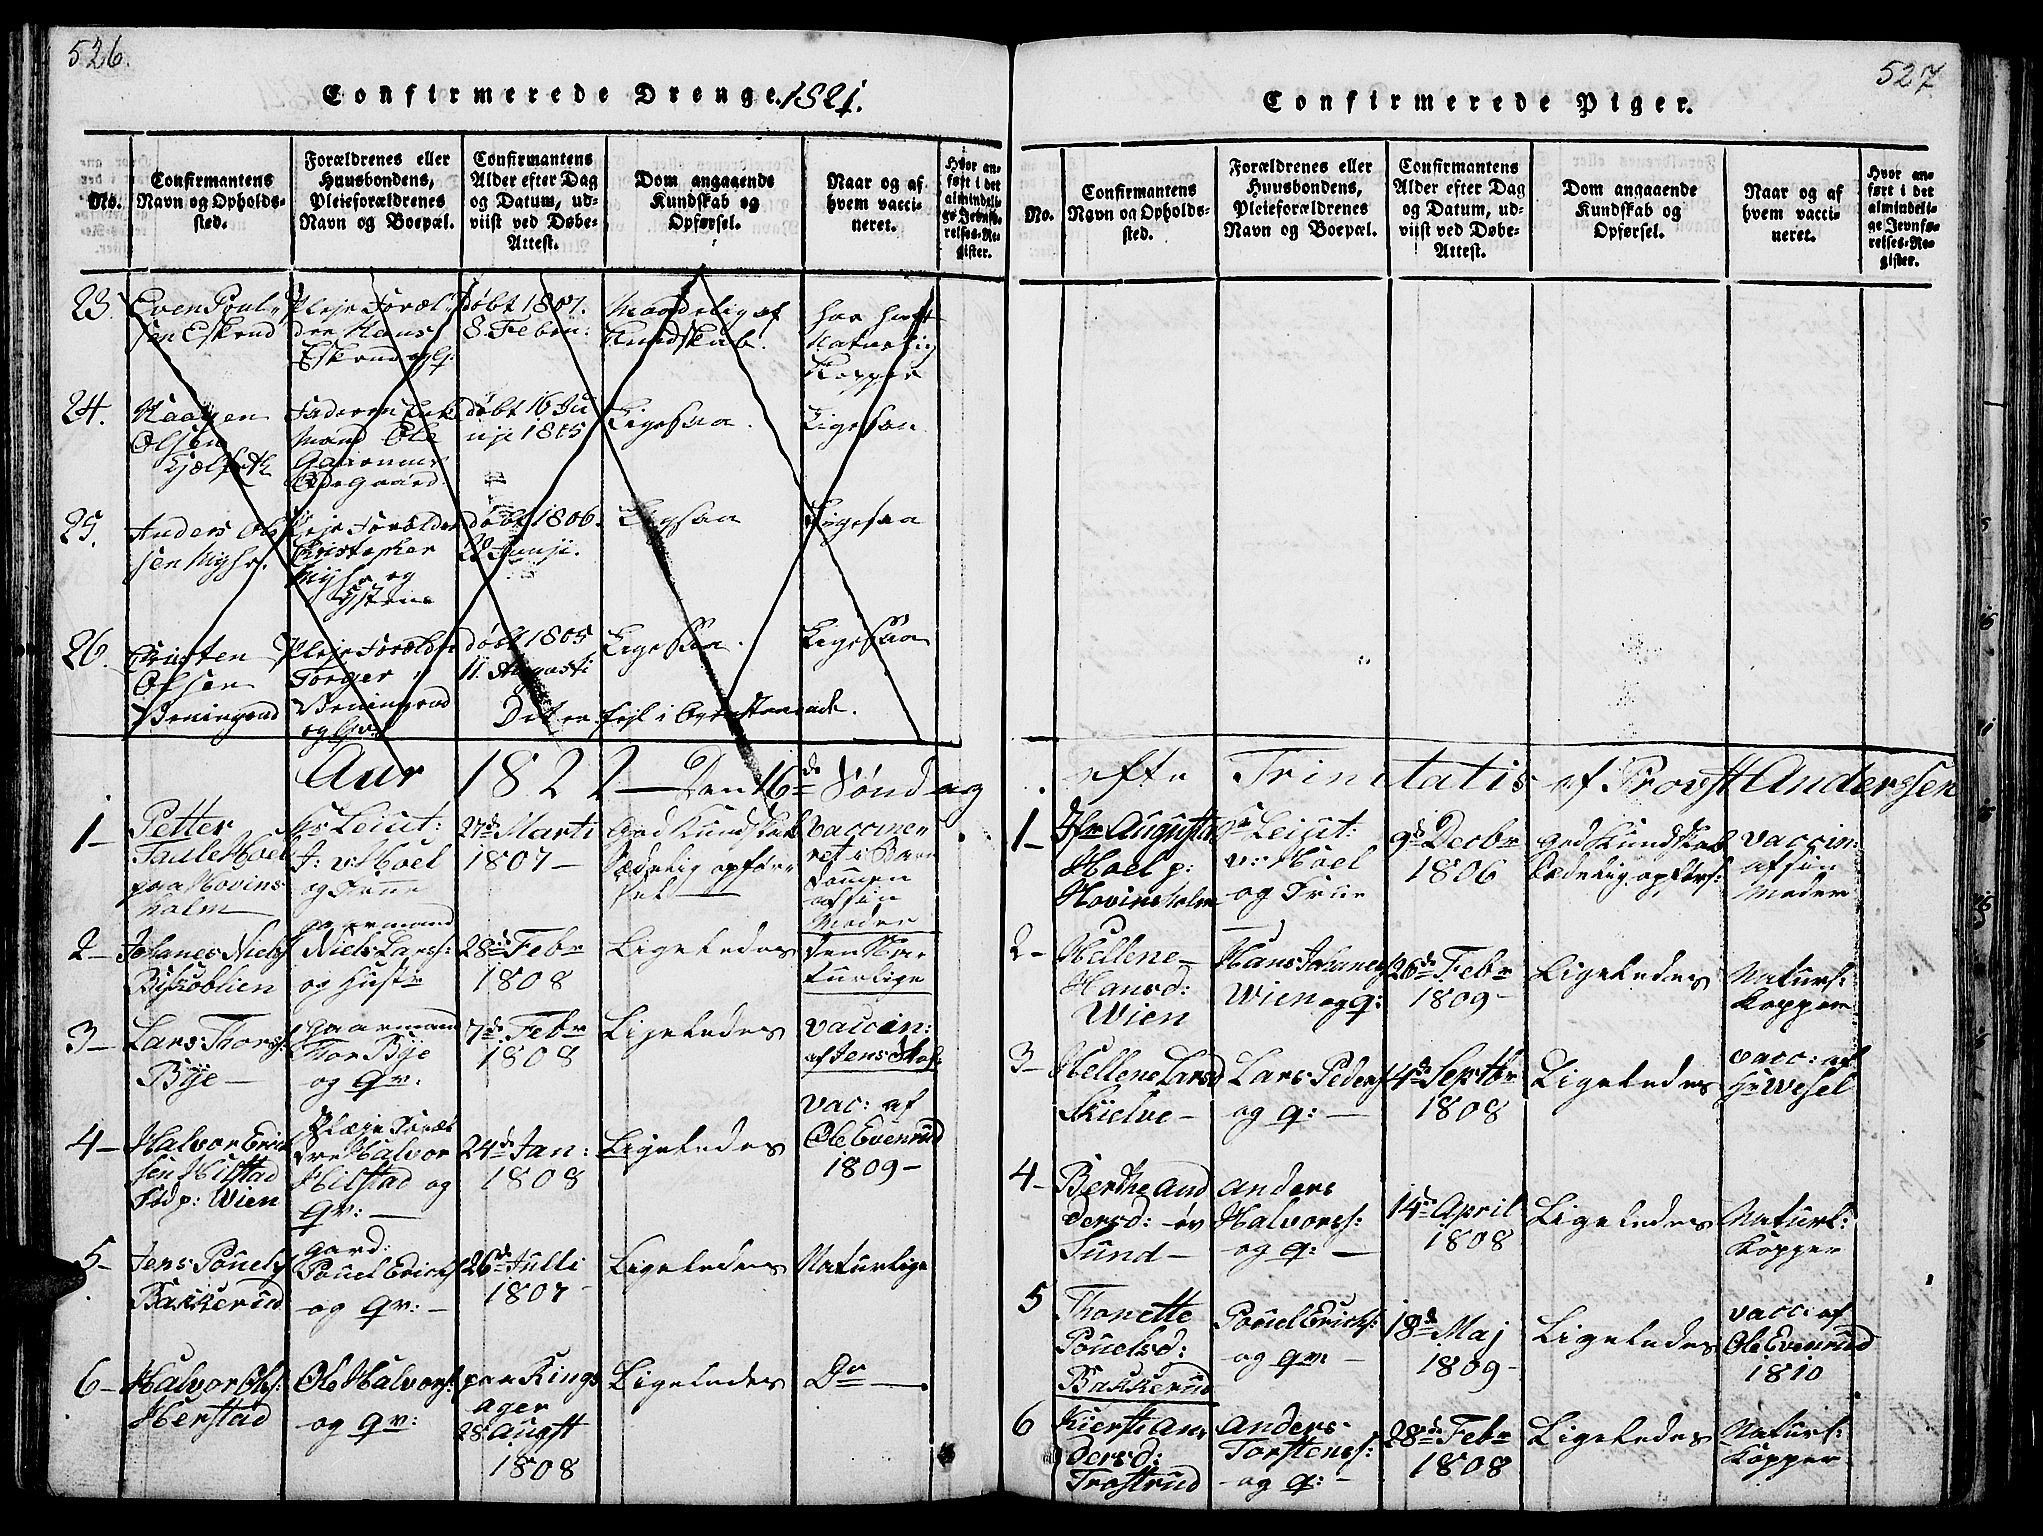 526.
Confirmerede Drenge. 1821.
No.
Confirmantens
Navn og Opholds-
sted.
Forældrenes eller
Huusbondens,
Pleieforældrenes
Navn og Boepæl.
Confirmantens
Alder efter Dag
og Datum, ud-
viist ved Døbe-
Attest.
Dom angaaende
Kundskab og
Opførsel.
Naar og af
hvem vacci-
neret.
Hvor an-
ført i det
almindeli-
ge Jevnfø-
relses-Re-
gister.
23.
Even Poul-
sen Eskrud
Pleje Foræl-
dre Hans
Eskrud og
døbt 1807.
8 Febru:
Maadelig af
Kundskab.
har haft
Naturlig
Kopper
24.
Haagen
Olsen
Faderen
Mand Ole
døbt 16 Ju
nije 1805
Ligesaa.
Ligesaa
25.
Anders Ol
sen Myhr.
Pleje Forælder
Cristopher
Myhr og
døbt 1806.
Junji.
Ligesaa
Ligesaa
26.
Cristen
Olsen
Pleje Forældre
Torger
døbt 1805
11. Augusti
Ligesaa.
Ligesaa
Det er fejl i
Aar 1822 — Den 16de Søndag
1-
Petter
Paule Hoel
paa Hovins
holm
Leiut:
J: v: Hoel
og Frue
27de Marti
1807-
God Kundskab
Sædelig opfør-
sel
vaccine-
ret i Barn
dommen
af sin
Moder
2-
Johanes Niels
Biskoblien
gaarmand
Niels Larss:
og Hustr
28de Febr
1808
Ligeledes
Den Na-
turlige
3-
Lars Thors:
Bije-
gaarmand
Thor Bije
og qv:
7de Febr
1808
Ligeledes
vaccin:
af Jens
4-
Halvor Erich
sen Hilstad
p: Wien
Plæje Foræl
dre Halvor
Hilstad og
qv: —
24de Jan:
1808
Ligeledes
vac: af
Ole Evenrud
1809-
5-
Jens Pouels
Bakkerud
gard:
Pouel Erichs
og qv: -
26de Julli
1807
Ligeledes
Naturlige
6-
Halvor Ols:
Herstad
Ole Halvors:
og qv:
paa Rings
ager
28 Augst
1808
Ligeledes
Do —
527
Confirmerede Piger.
No.
Confirmantens
Navn og Opholds-
sted.
Forældrenes eller
Huusbondens,
Pleieforældrenes
Navn og Boepæl.
Confirmantens
Alder efter Dag
og Datum, ud-
viist ved Døbe-
Attest.
Dom angaaende
Kundskab og
Opførsel.
Naar og af
hvem vacci-
neret.
Hvor an-
ført i det
almindeli-
ge Jevnfø-
relses-Re-
gister.
efte Trinitatis af Provst Anderssen
1-
Jfr Augusta
Hoel p:
Hovinsholm
Leiut:
v: Hoel
og Frue
9de Decbr
1806
god Kundskab
Sædelig opførs:
vaccin:
af sin
Moder
2-
Hellene
Hansd:
Wien
Hans Johanes
Wien og q:
26de Febr
1809-
Ligeledes
Naturl:
Kopper
3-
Hellene Larsd
Skielve-
Lars Peders
og q: —
4de Septbr
1808
Ligeledes
vacc: af
Hr Wesel
4-
Berthe And
dersd: öv
Sund-
Anders
Halvorss:
og q: —
14de April
1808
Ligeledes
Naturl:
Kopper
5
Thonette
Pouelsd:
Bakkerud
Pouel Erichs:
og qv: -
18de Maj
1809-
Ligeledes
vacc: af
Ole Evenrud
1810
6
Kiersti An-
dersd:
Trostrud
Anders
Torstens:
og q: -
28de Febr
1808
Ligeledes
Naturl:
Kopper